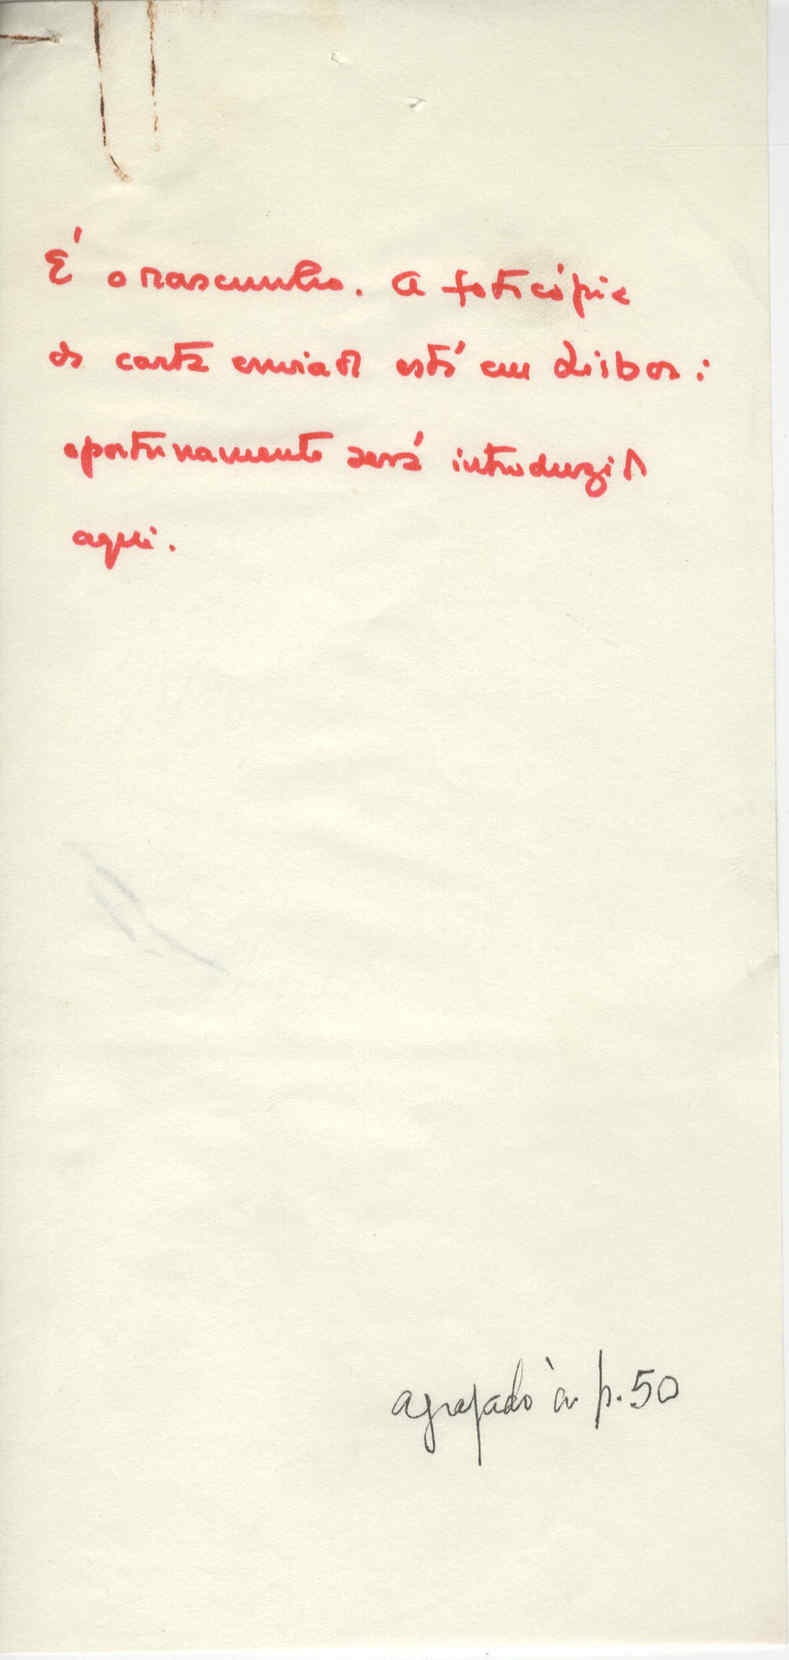 É o rascunho. A fotocópia
da carta enviada está em Lisboa:
oportunamente será introduzida
aqui.
agrafado à p. 50